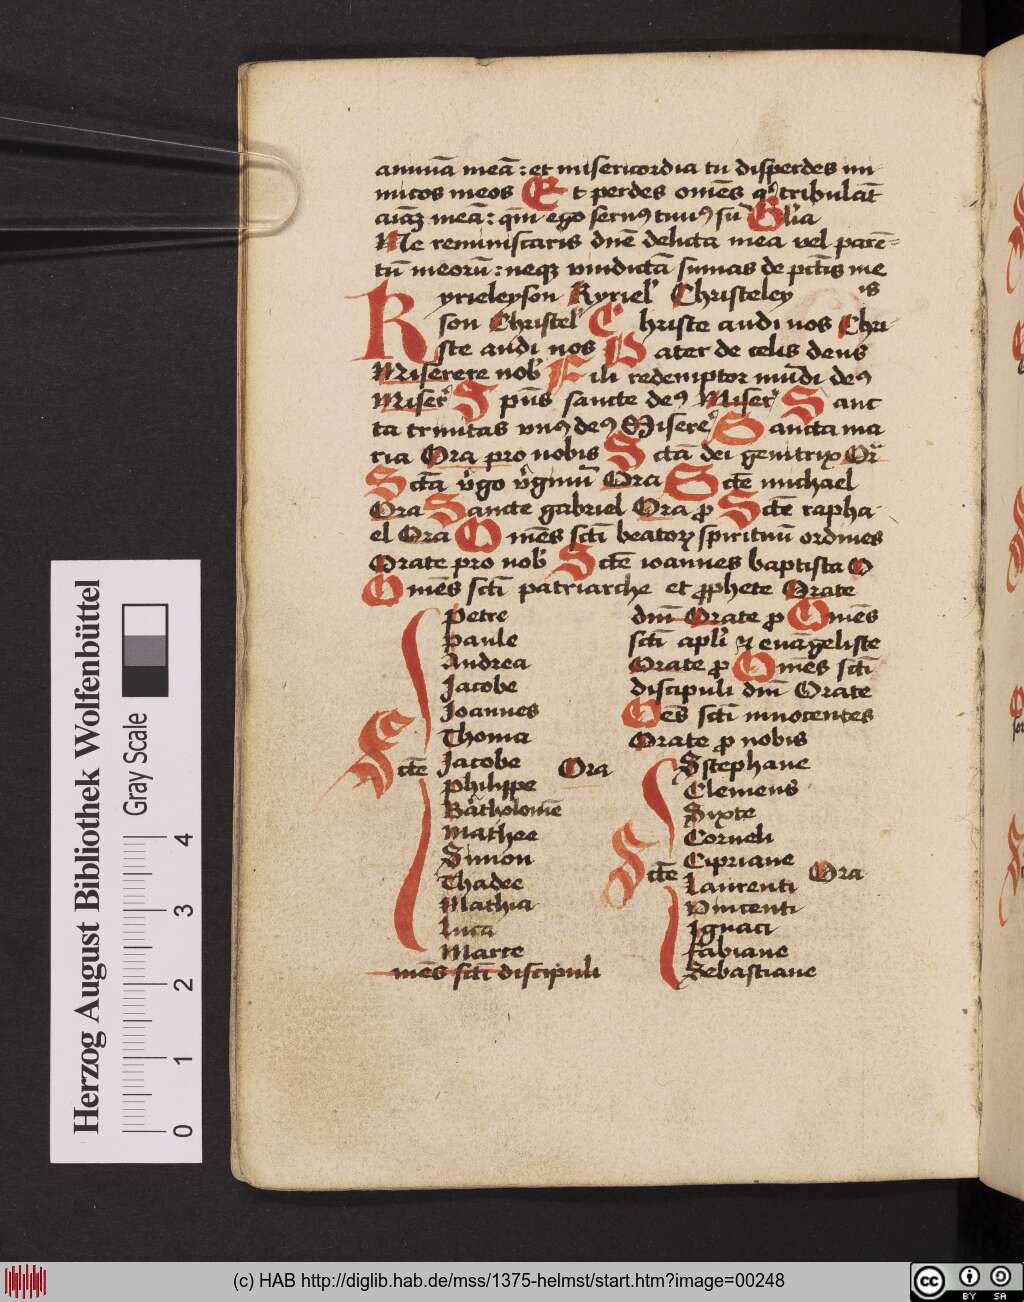 animā meā : et misericordia tu disperdes ini-
micos meos Et perdes om̄es qͥ tribulāt
aīaꝫ meā : qm̄ ego seruꝰ tuuꝰ sū Gl'ia
Ne reminiscaris dn̄e delicta mea vel parē=
tū meorū : neqꝫ vindictā sumas de pctīs me
is
Kyrieleyson Kyriel' Christeley
son Christel' Christe audi nos Chri-
ste audi nos Pater de celis deus
Miserere nob' Fili redemptor mūdi deꝰ
Miser' Spūs sancte deꝰ Miser' Sanc
ta trinitas vnꝰ deꝰ Misere' Sancta ma
ria Ora pro nobis Sctā dei genitrix Or
Sctā v̓go v̓ginū Ora Sctē michael
Ora Sancte gabriel Ora ꝓ Sctē rapha-
el Ora Om̄es sctī beatoꝝ spirituū ordines
Orate pro nob' Sctē ioannes baptista O
Om̄es sctī patriarche et ꝓphete Orate
Petre
Paule
Andrea
Jacobe
Joannes
Thoma
Sctē Jacobe Ora
Philippe
Bartholomē
Mathee
Simon
Thadee
Mathia
Luca
Marce
mēs sctī discipuli
dnī Orate ꝓ Omēs
sctī apl'i & euāgeliste
Orate ꝓ Omēs sctī
discipuli dnī Orate
Oēs sctī innocentes
Orate ꝓ nobis
Stephane
Clemens
Sixte
Corneli
Cipriane
Sctē Ora
Laurenti
Vincenti
Ignaci
Fabiane
Sebastiane
Herzog August Bibliothek Wolfenbüttel
Gray Scale
0 1 2 3 4
(c) HAB http://diglib.hab.de/mss/1375-helmst/start.htm?image=00248
cc BY SA